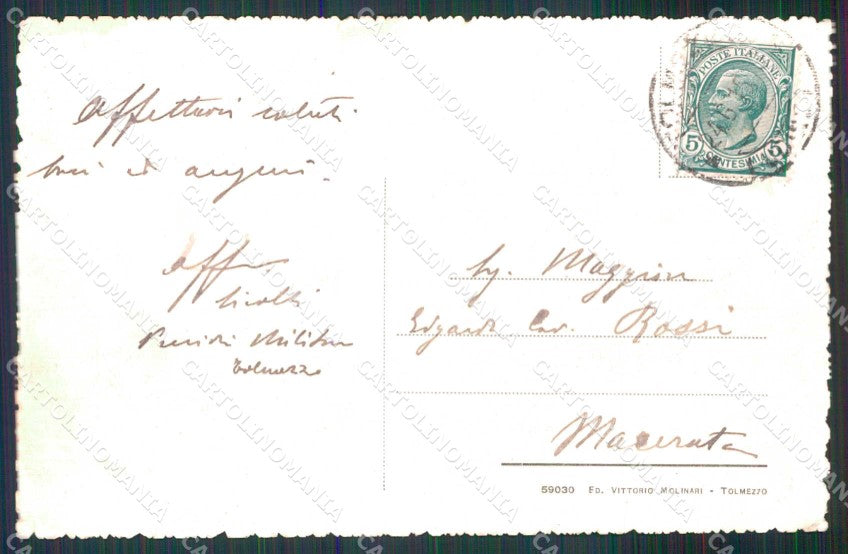 Affettuosi saluti
baci ed auguri.
Aff
Militare
Tolmezzo
POSTE ITALIANE
5 CENTESIMI 5
Sig. Maggiore
Edgardo Cav. Rossi
Macerata
59030 ED. VITTORIO MOLINARI - TOLMEZZO
CARTOLINOMANIA